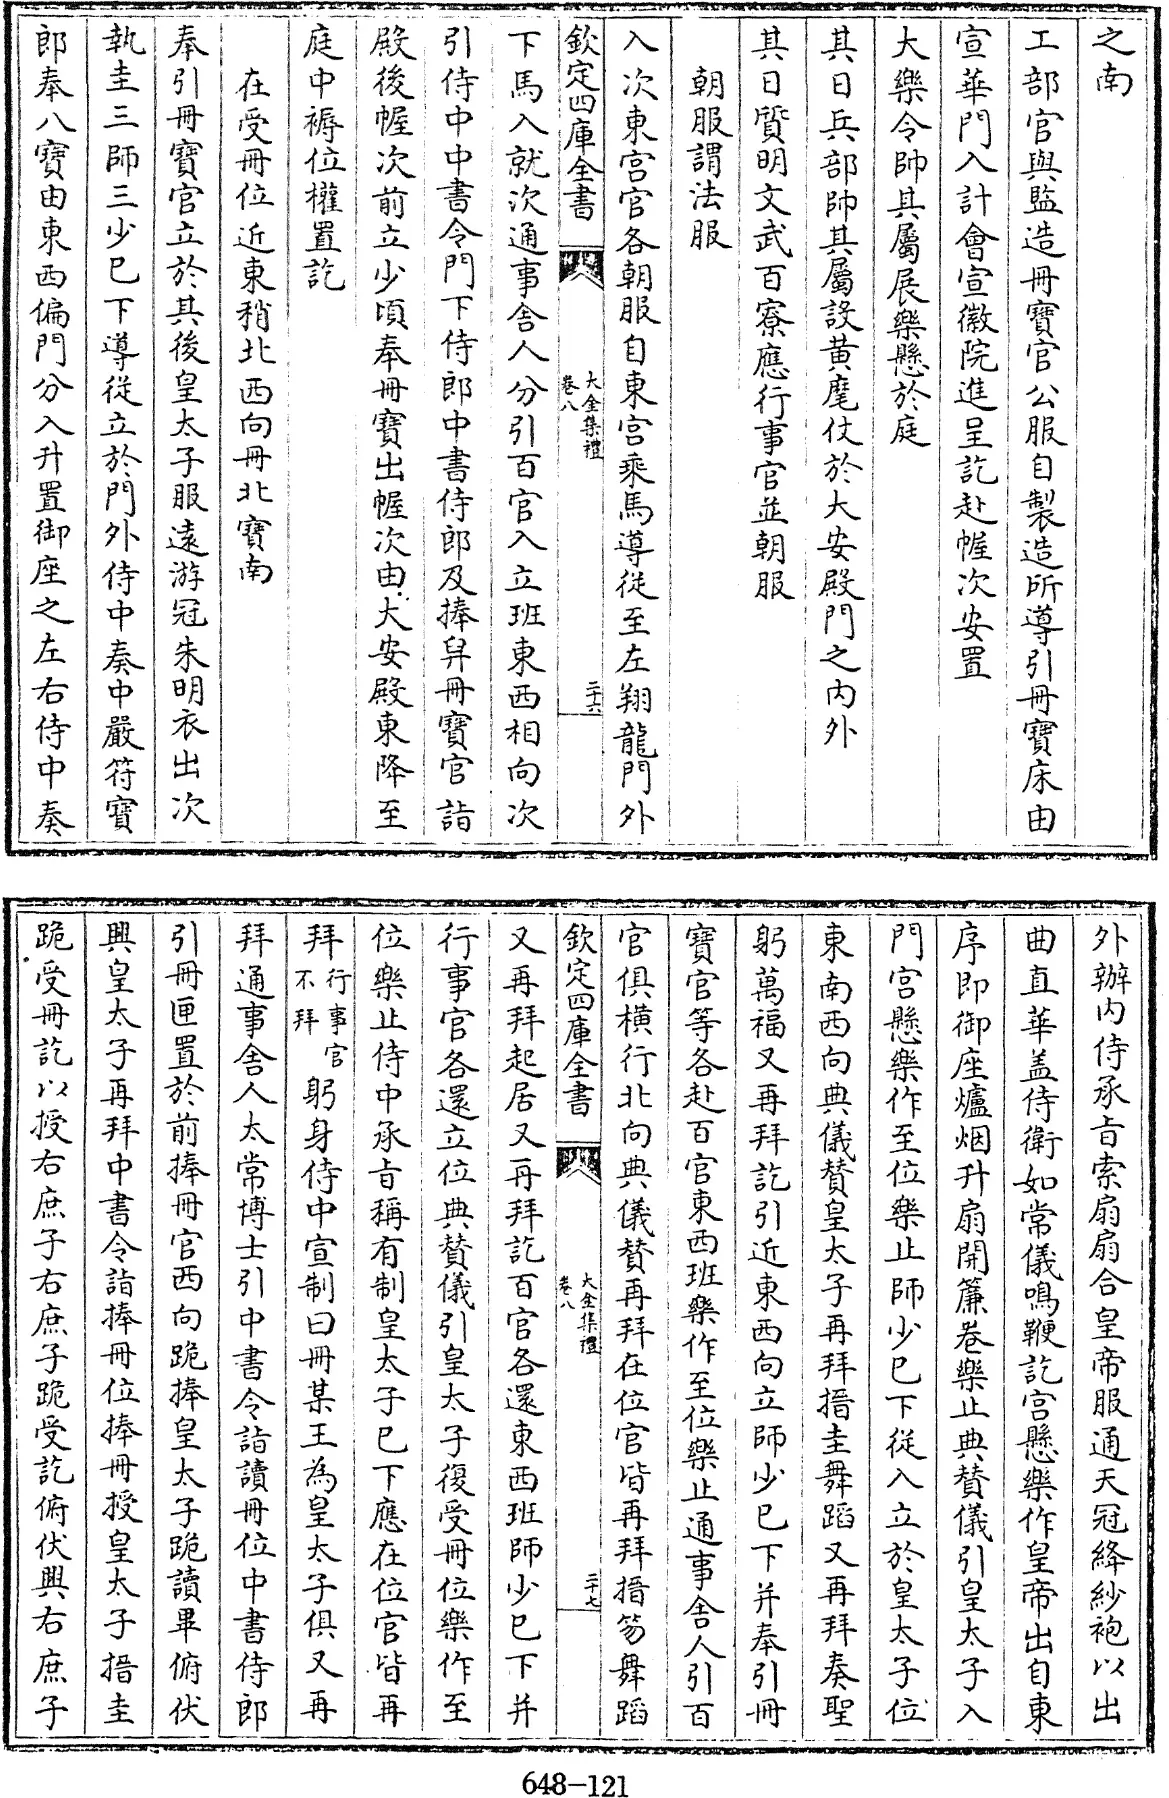 之南
工部官與監造冊寶官公服自製造所導引冊寶床由
宣華門入計會宣徽院進呈訖赴幄次安置
大樂令帥其屬展樂懸於庭
其日兵部帥其屬設黄麾仗於大安殿門之内外
其日質明文武百寮應行事官並朝服
朝服謂法服
入次東宫官各朝服自東宫乘馬導從至左翔龍門外
欽定四庫全書
大金集禮
卷八
二十六
下馬入就次通事舍人分引百官入立班東西相向次
引侍中中書令門下侍郎中書侍郎及捧舁冊寶官詣
殿後幄次前立少頃奉冊寶出幄次由大安殿東降至
庭中褥位權置訖
在受冊位近東稍北西向冊北寶南
奉引冊寶官立於其後皇太子服遠游冠朱明衣出次
執圭三師三少已下導從立於門外侍中奏中嚴符寶
郎奉八寶由東西偏門分入升置御座之左右侍中奏
外辦内侍承旨索扇扇合皇帝服通天冠絳紗袍以出
曲直華蓋侍衛如常儀鳴鞭訖宫懸樂作皇帝出自東
序即御座爐烟升扇開簾卷樂止典贊儀引皇太子入
門宫懸樂作至位樂止師少已下從入立於皇太子位
東南西向典儀贊皇太子再拜搢圭舞蹈又再拜奏聖
躬萬福又再拜訖引近東西向立師少已下并奉引冊
寶官等各赴百官東西班樂作至位樂止通事舍人引百
官俱横行北向典儀贊再拜在位官皆再拜搢笏舞蹈
欽定四庫全書
大金集禮
卷八
二十七
又再拜起居又再拜訖百官各還東西班師少已下并
行事官各還立位典贊儀引皇太子復受冊位樂作至
位樂止侍中承旨稱有制皇太子已下應在位官皆再
拜行事官不拜躬身侍中宣制曰冊某王為皇太子俱又再
拜通事舍人太常博士引中書令詣讀冊位中書侍郎
引冊匣置於前捧冊官西向跪捧皇太子跪讀畢俯伏
興皇太子再拜中書令詣捧冊位捧冊授皇太子搢圭
跪受冊訖以授右庶子右庶子跪受訖俯伏興右庶子
648-121